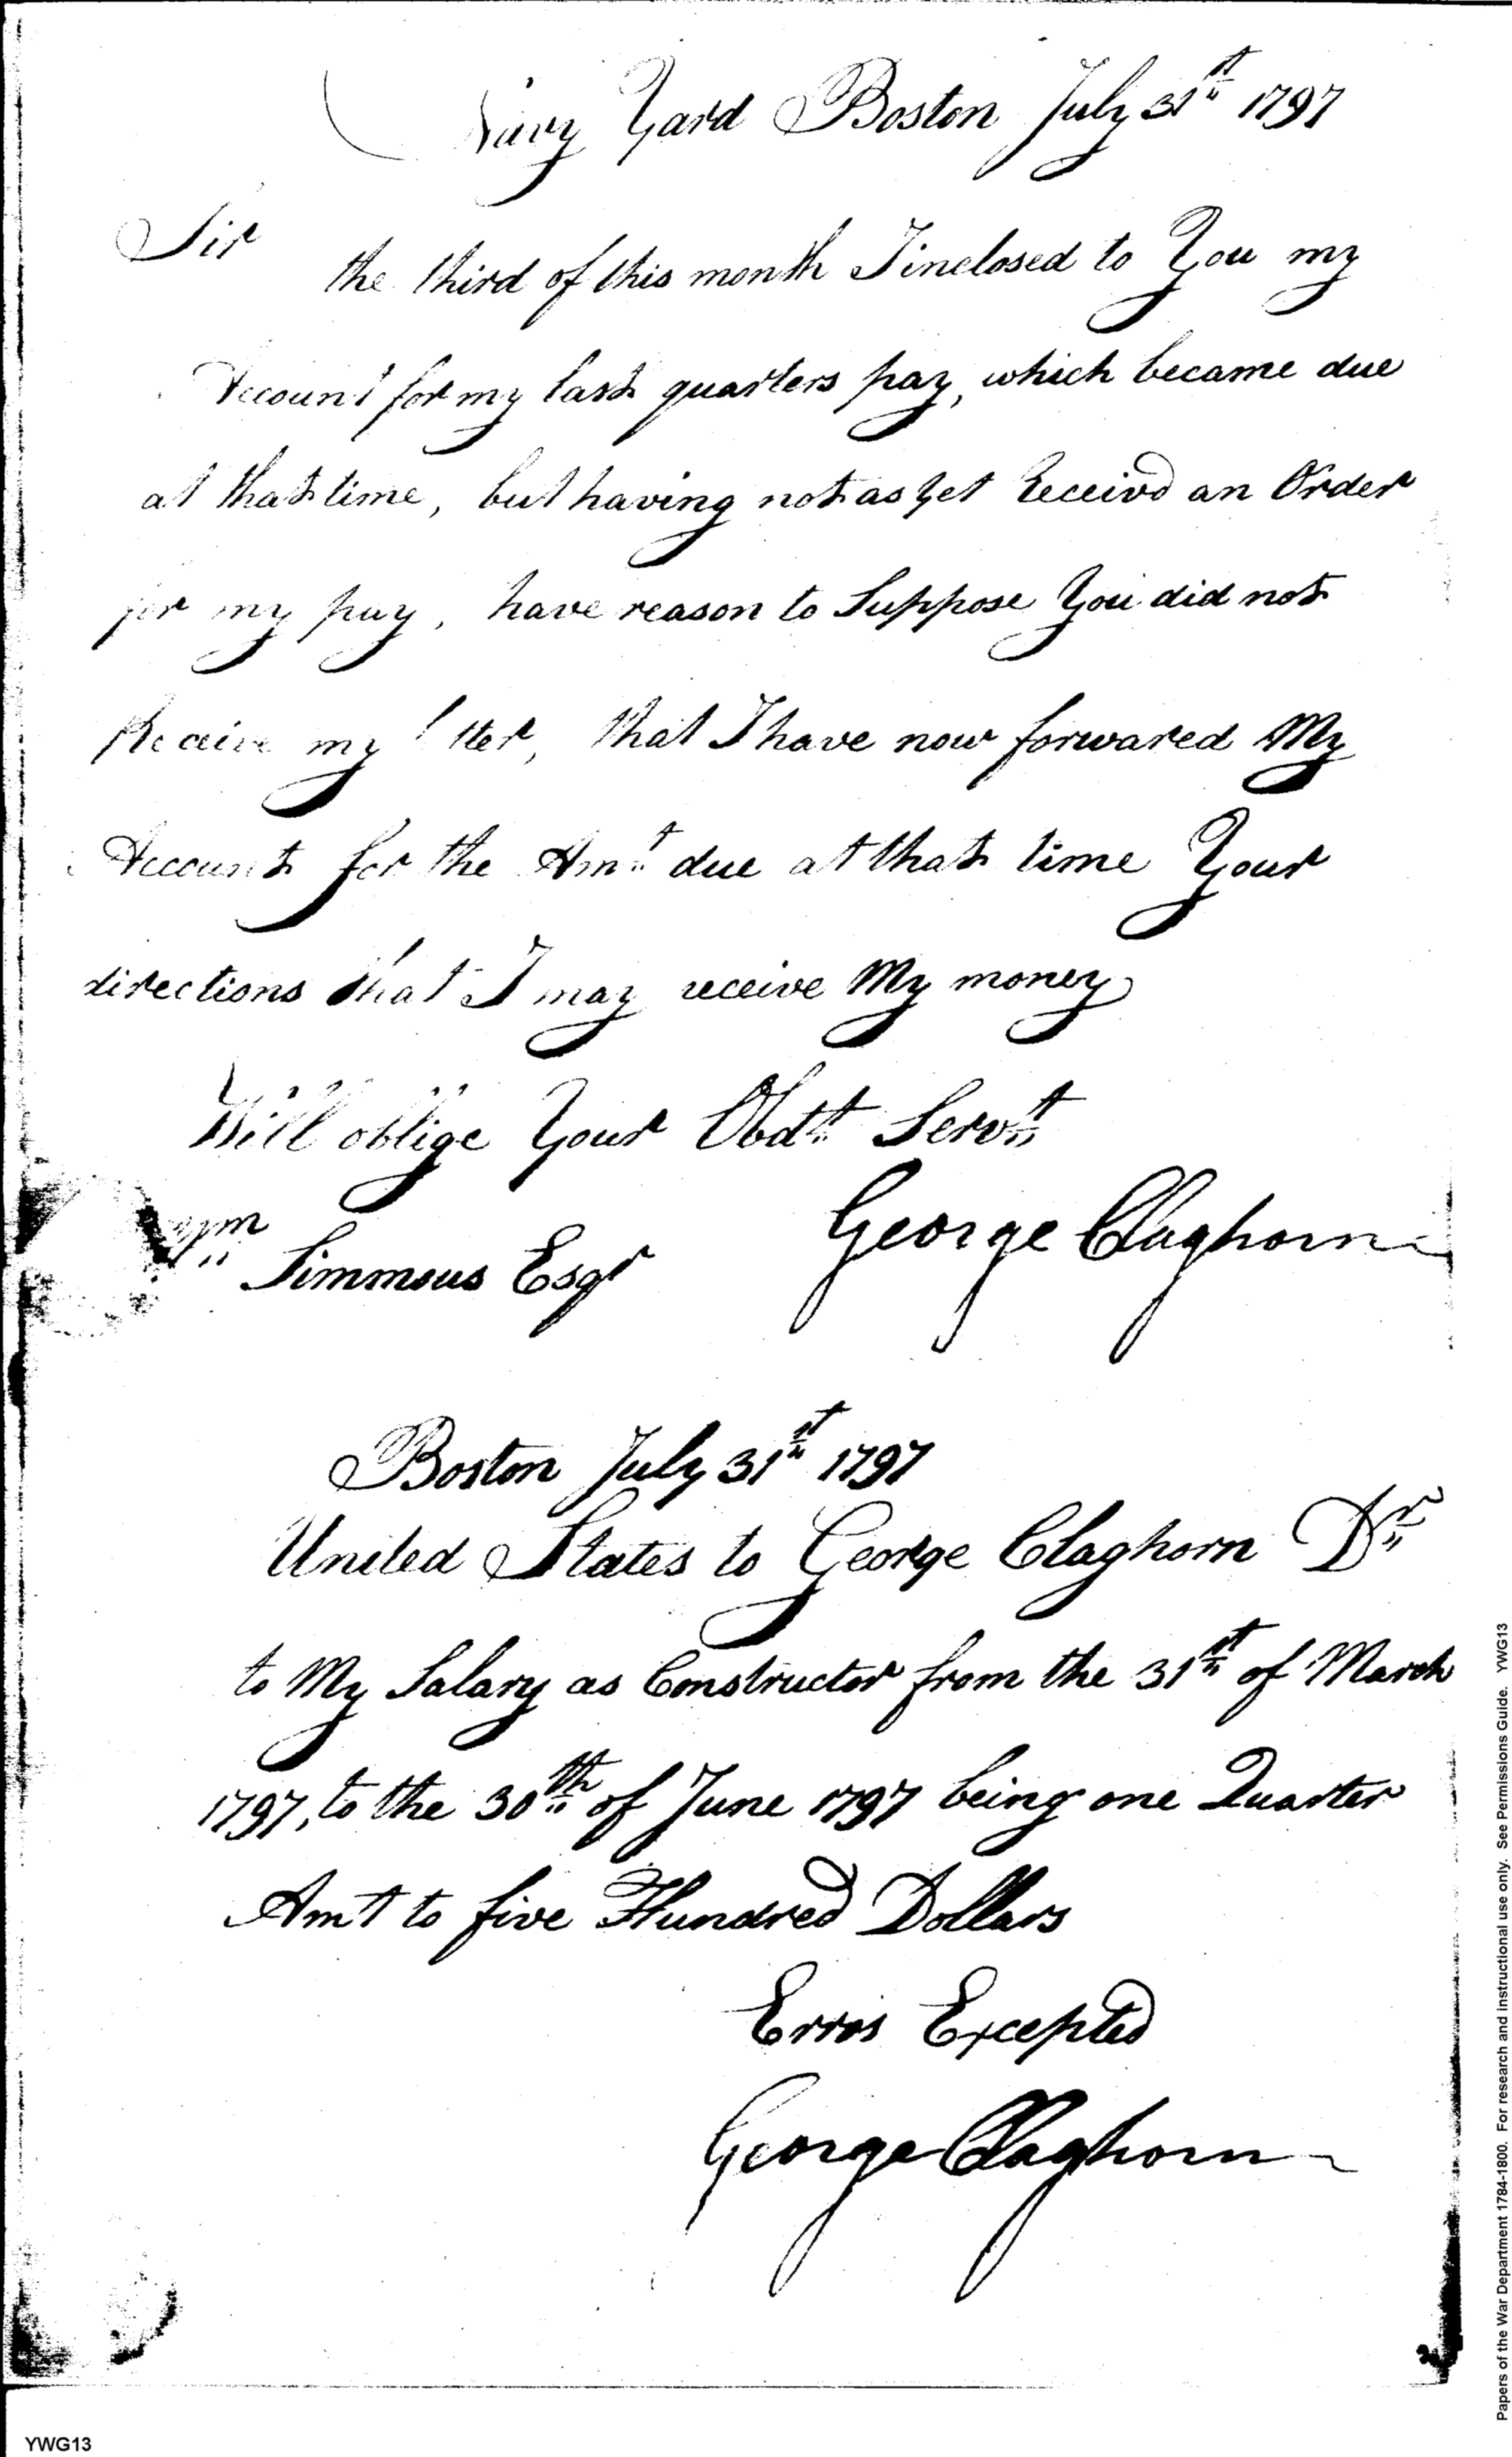 Navy Yard Boston July 31st 1797
Sir
the third of this month I inclosed to You my
Account for my last quarters pay, which became due
at that time, but having not as yet Receivd an Order
for my pay, have reason to Suppose You did not
Receive my letter, that I have now forwared My
Account for the Amt due at that time Your
directions that I may receive My money
Will oblige Your Obdt Servt
George Claghorn
Wm Simmous Esqr
Boston July 31st 1797
United States to George Claghorn Dr
to My Salary as Constructor from the 31st of March
1797, to the 30th of June 1797 being one Quarter
Amt to five Hundred Dollars
Erros Excepted
George Claghorn
YWG13
Papers of the War Department 1784-1800. For research and instructional use only. See Permissions Guide. YWG13